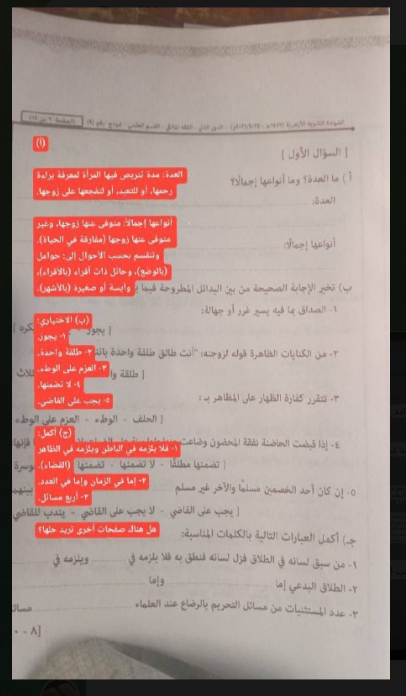 الشهادة الثانوية الأزهرية الدور الثاني - الفقه المالكي - القسم العلمي - نموذج رقم
(أ)
[ السؤال الأول ]
أ ) ما العدة؟ وما أنواعها إجمالًا؟
العدة: مدة تتربص فيها المرأة لمعرفة براءة
رحمها، أو للتعبد، أو لتفجعها على زوجها.
العدة:
أنواعها إجمالًا: متوفى عنها زوجها، وغير
متوفى عنها زوجها (مفارقة في الحياة).
وتنقسم بحسب الأحوال إلى: حوامل
(بالوضع)، وحائل ذات أقراء (بالأقراء)،
وآيسة أو صغيرة (بالأشهر).
أنواعها إجمالًا:
ب) تخير الإجابة الصحيحة من بين البدائل المطروحة فيما
١- الصداق بما فيه يسير غرر أو جهالة:
(ب) الاختياري:
١- يجوز.
٢- طلقة واحدة.
٣- العزم على الوطء.
٤- لا تضمنها.
٥- يجب على القاضي.
[ يجوز
٢- من الكنايات الظاهرة قوله لزوجته: "أنت طالق طلقة واحدة
[ طلقة
٣- تتقرر كفارة الظهار على المظاهر بـ :
[ الحلف - الوطء - العزم على الوطء
٤- إذا قبضت الحاضنة نفقة المحضون وضاعت
[ تضمنها مطلقًا - لا تضمنها - تضمنها
٥- إن كان أحد الخصمين مسلمًا والآخر غير مسلم
[ يجب على القاضي - لا يجب على القاضي - يندب للقاضي
(ج) أكمل:
١- فلا يلزمه في الباطن ويلزمه في الظاهر
(القضاء).
٢- إما في الزمان وإما في العدد.
٣- أربع مسائل.
هل هناك صفحات أخرى تريد حلها؟
جـ) أكمل العبارات التالية بالكلمات المناسبة:
١- من سبق لسانه في الطلاق فزل لسانه فنطق به فلا يلزمه في ويلزمه في
٢- الطلاق البدعي إما وإما
٣- عدد المستثنيات من مسائل التحريم بالرضاع عند العلماء